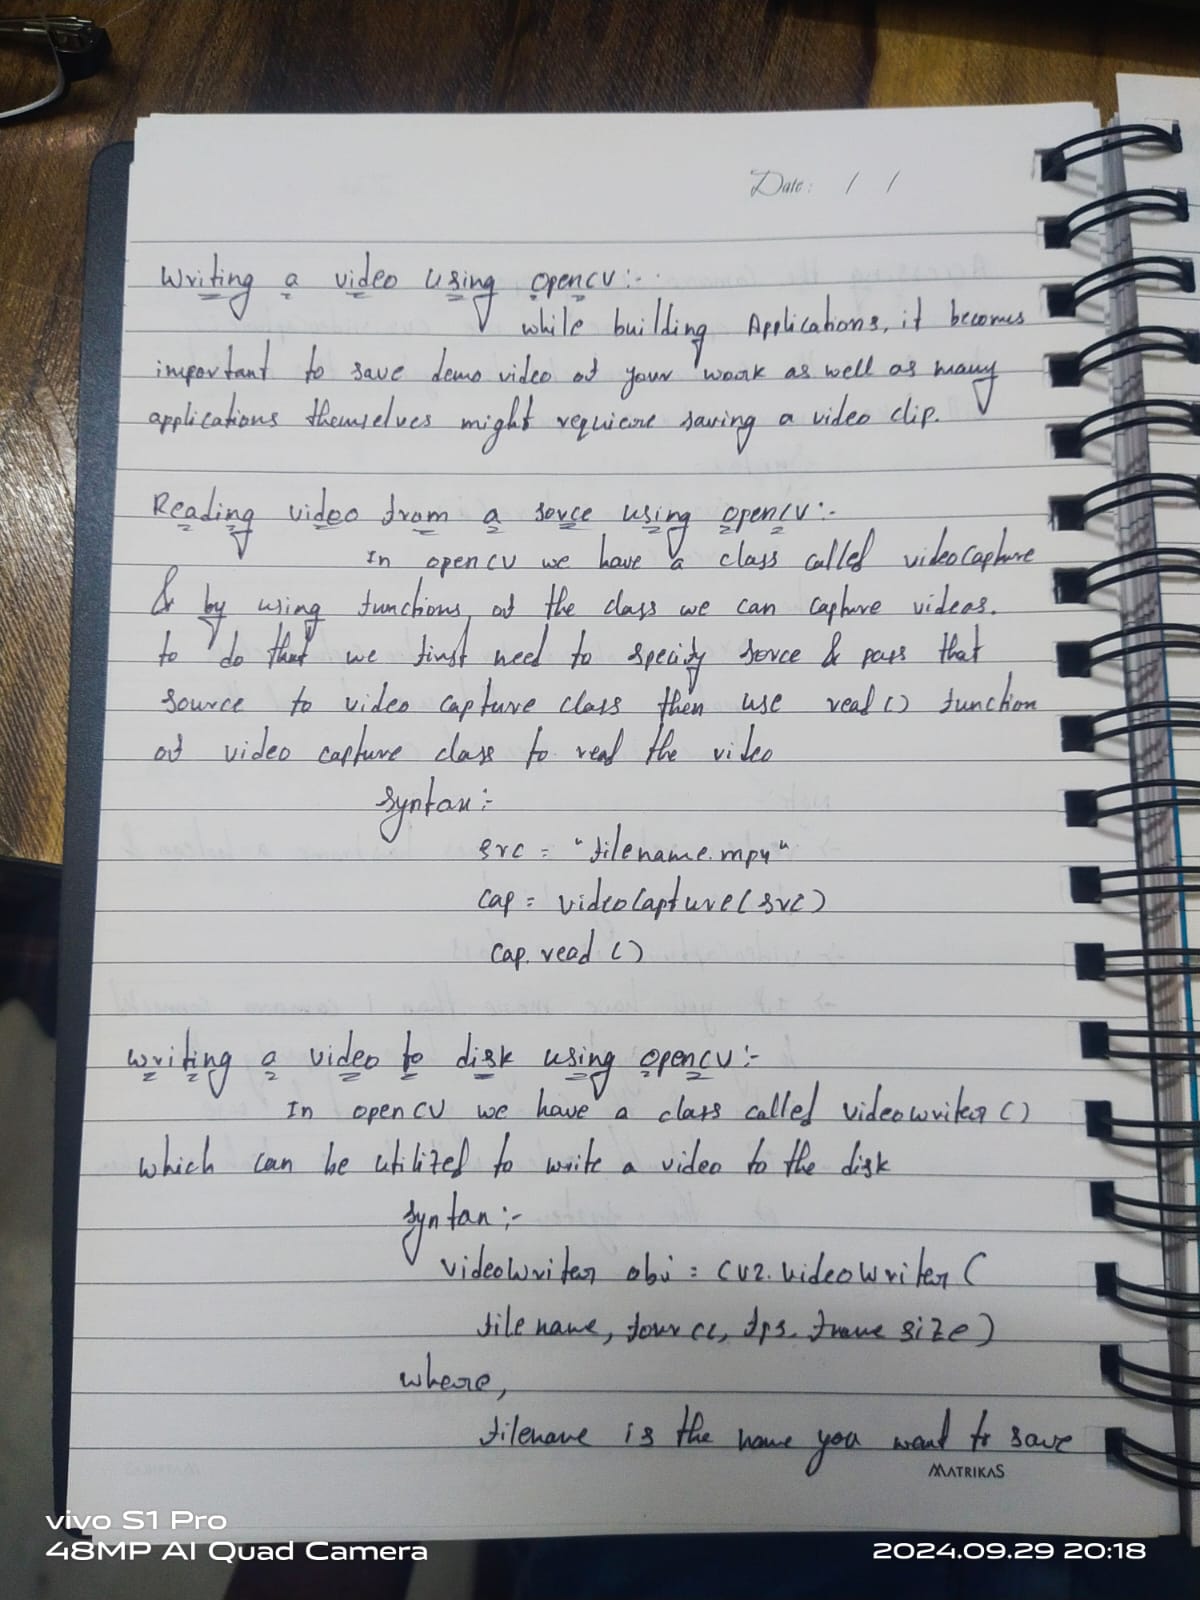 Date: / /
Writing a video using opencv:-
while building Applications, it becomes
important to save demo video of your work as well as many
applications themselves might requiere saving a video clip.
Reading video from a sorce using opencv:-
In opencv we have a class called videoCapture
& by using functions of the class we can capture videos.
to do that we first need to specify sorce & pass that
source to video capture class then use read() function
of video capture class to read the video
syntax:-
src = "filename.mp4"
cap = videoCapture(src)
cap.read()
writing a video to disk using opencv:-
In opencv we have a class called videowriter()
which can be utilized to write a video to the disk
syntax:-
videoWriter obj = cv2.videoWriter(
filename, fourcc, fps, frame size)
where,
filename is the name you want to save
MATRIKAS
vivo S1 Pro
48MP AI Quad Camera
2024.09.29 20:18